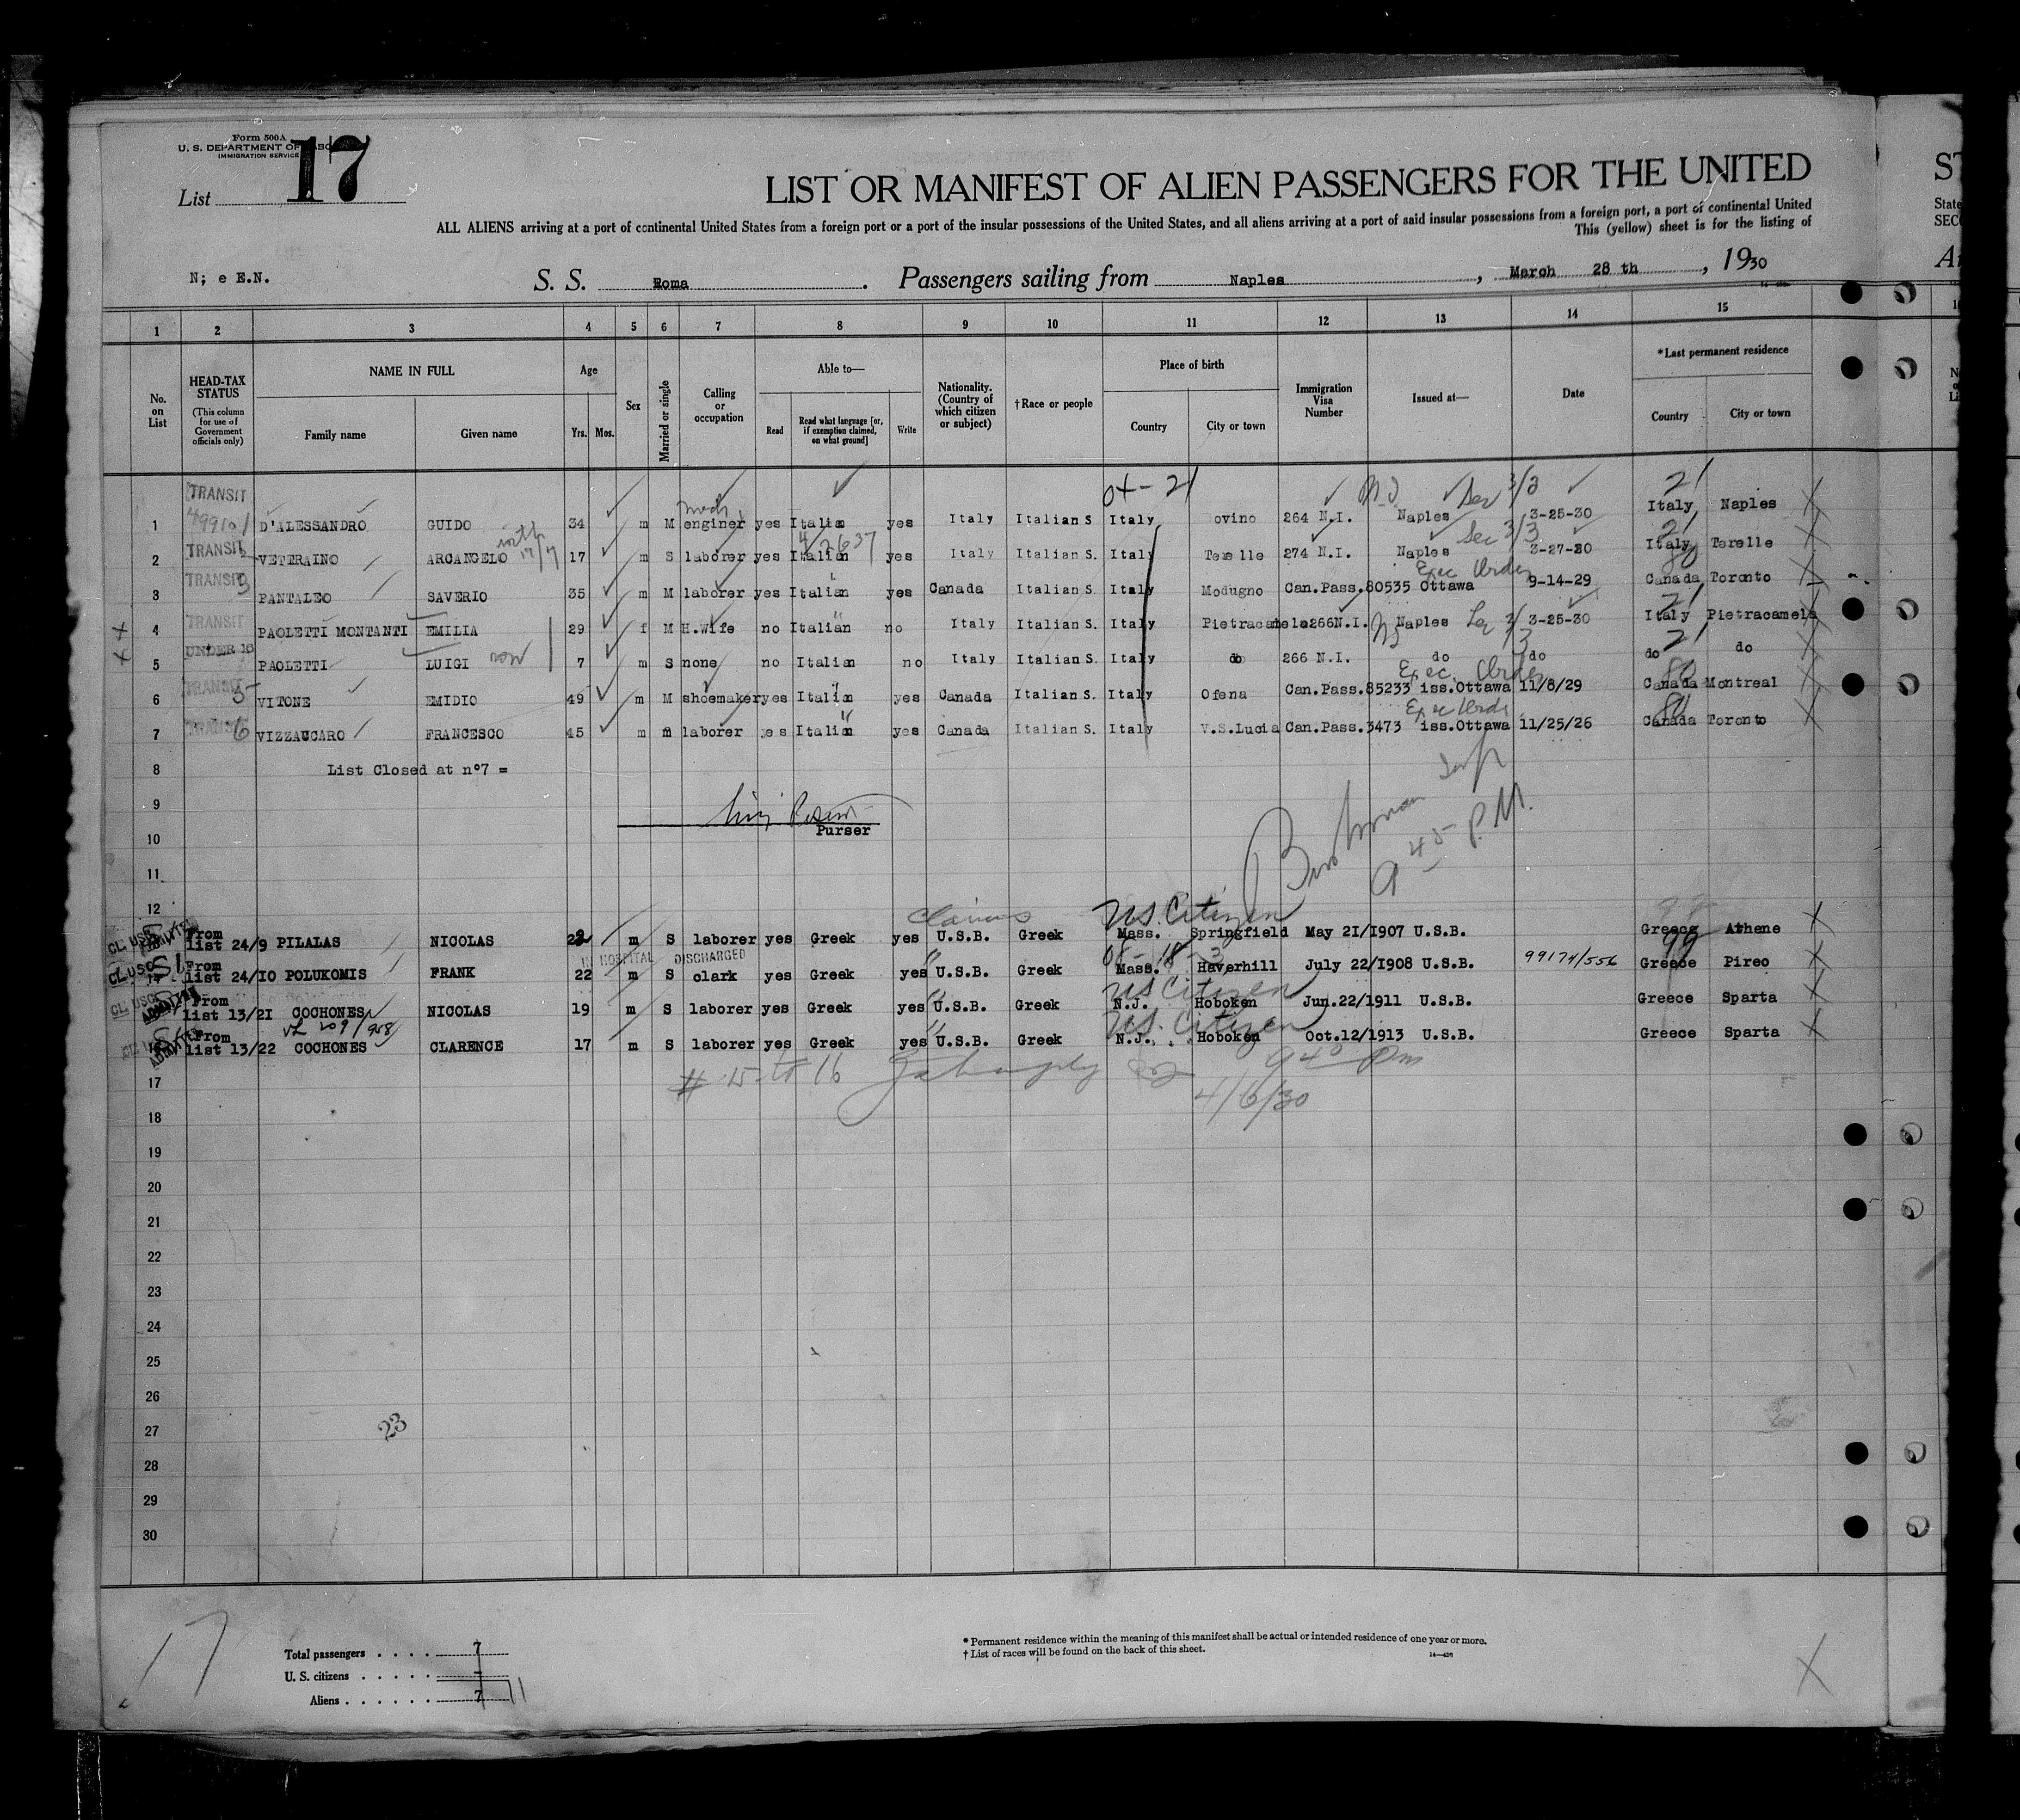 Form 500A
U. S. DEPARTMENT OF
IMMIGRATION SERVICE
List 17
LIST OR MANIFEST OF ALIEN PASSENGERS FOR THE UNITED
ALL ALIENS arriving at a port of continental United States from a foreign port or a port of the insular possessions of the United States, and all aliens arriving at a port of said insular possessions from a foreign port, a port of continental United
This (yellow) sheet is for the listing of
N; e E.N. S. S. Roma. Passengers sailing from Naples, March 28 th, 1930
1 2 3 4 5 6 7 8 9 10 11 12 13 14 15
No. on List
HEAD-TAX STATUS (This column for use of Government officials only)
NAME IN FULL Family name Given name
Age Yrs. Mos.
Sex
Married or single
Calling or occupation
Able to— Read Read what language [or, if exemption claimed, on what ground] Write
Nationality. (Country of which citizen or subject)
†Race or people
Place of birth Country City or town
Immigration Visa Number
Issued at—
Date
*Last permanent residence Country City or town
04-21
1 TRANSIT D'ALESSANDRO GUIDO 34 m M enginer yes Italian yes Italy Italian S Italy ovino 264 N.I. Naples 3-25-30 Italy Naples
2 TRANSIT VETERAINO ARCANGELO 17 m S laborer yes Italian yes Italy Italian S. Italy Terelle 274 N.I. Naples 3-27-30 Italy Terelle
Exec Order
3 TRANSIT PANTALEO SAVERIO 35 m M laborer yes Italian yes Canada Italian S. Italy Modugno Can.Pass.80535 Ottawa 9-14-29 Canada Toronto
4 TRANSIT PAOLETTI MONTANTI EMILIA 29 f M H.Wife no Italian no Italy Italian S. Italy Pietracamela 266 N.I. Naples 3-25-30 Italy Pietracamela
5 UNDER 16 PAOLETTI LUIGI son 7 m S none no Italian no Italy Italian S. Italy do 266 N.I. do do do do
Exec. Order
6 TRANSIT 5 VITONE EMIDIO 49 m M shoemaker yes Italian yes Canada Italian S. Italy Ofena Can.Pass.85233 iss.Ottawa 11/8/29 Canada Montreal
7 6 VIZZAUCARO FRANCESCO 45 m m laborer yes Italian yes Canada Italian S. Italy V.S.Lucia Can.Pass.3473 iss.Ottawa 11/25/26 Canada Toronto
8 List Closed at n°7 =
9
Purser
10
9 45 P.M.
11
12
Claims US. Citizen
From list 24/9 PILALAS NICOLAS 22 m S laborer yes Greek yes U.S.B. Greek Mass. Springfield May 21/1907 U.S.B. Greece Athene
IN HOSPITAL DISCHARGED
From list 24/10 POLUKOMIS FRANK 22 m S clark yes Greek yes U.S.B. Greek Mass. Haverhill July 22/1908 U.S.B. 99174/556 Greece Pireo
US Citizen
From list 13/21 COCHONES NICOLAS 19 m S laborer yes Greek yes U.S.B. Greek N.J. Hoboken Jun.22/1911 U.S.B. Greece Sparta
US. Citizen
From list 13/22 COCHONES CLARENCE 17 m S laborer yes Greek yes U.S.B. Greek N.J. Hoboken Oct.12/1913 U.S.B. Greece Sparta
17
# 15 to 16
4/6/30
18
19
20
21
22
23
24
25
26
27
23
28
29
30
17
Total passengers 7
U. S. citizens –
Aliens 7 11
* Permanent residence within the meaning of this manifest shall be actual or intended residence of one year or more.
† List of races will be found on the back of this sheet.